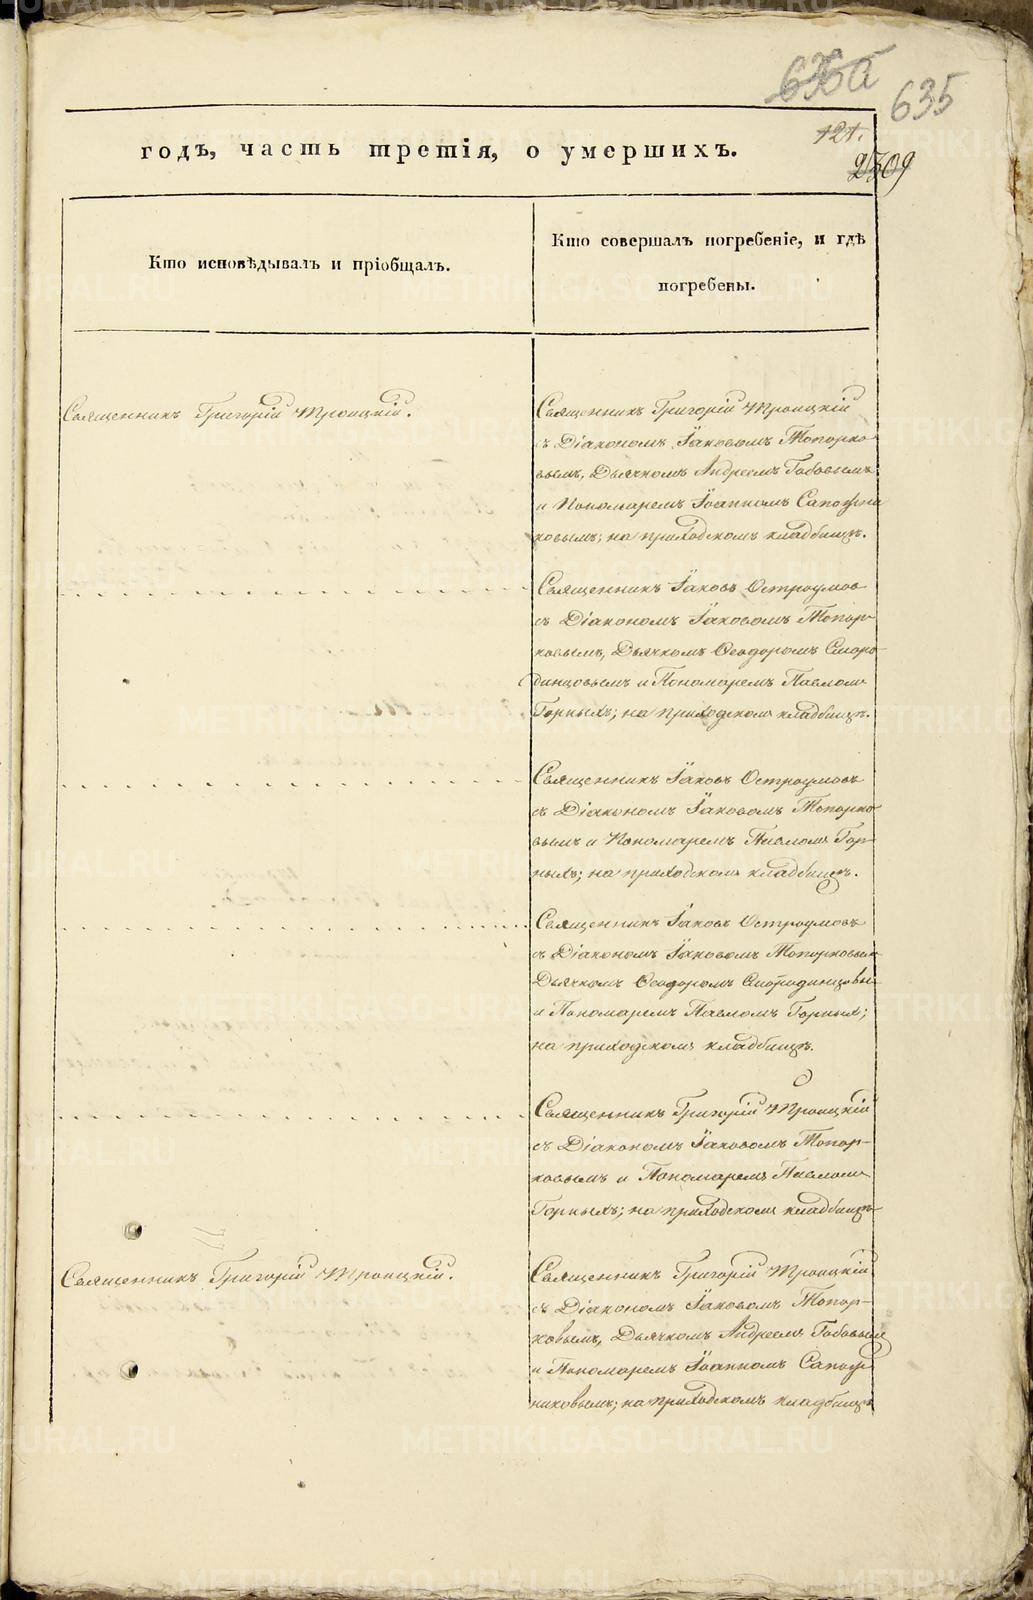 636а
635
121.
2309
годъ, часть третія, о умершихъ.
Кто исповѣдывалъ и пріобщалъ.
Кто совершалъ погребеніе, и гдѣ
погребены.
Священникъ Григорій Троицкій.
Священникъ Григорій Троицкій
съ Діакономъ Іаковомъ Топорко-
вымъ, Дьячкомъ Андреемъ Бабовымъ
и Пономаремъ Іоанномъ Сапожни
ковымъ; на приходскомъ кладбищѣ.
Священникъ Іаковъ Остроумов
съ Діакономъ Іаковомъ Топор-
ковымъ, Дьячкомъ Ѳеодоромъ Сморо-
динцовымъ и Пономаремъ Павломъ
Горныхъ; на приходскомъ кладбищѣ.
Священникъ Іаковъ Остроумовъ
съ Діакономъ Іаковомъ Топорко-
вымъ и Пономаремъ Павломъ Гор-
ныхъ; на приходскомъ кладбищѣ.
Священникъ Іаковъ Остроумовъ
съ Діакономъ Іаковомъ Топорковымъ
Дьячкомъ Ѳеодоромъ Смородинцовы-
и Пономаремъ Павломъ Горныхъ;
на приходскомъ кладбищѣ.
Священникъ Григорій Троицкій
съ Діакономъ Іаковомъ Топор-
ковымъ и Пономаремъ Павломъ
Горныхъ; на приходскомъ кладбищѣ
Священникъ Григорій Троицкій.
Священникъ Григорій Троицкій
съ Діакономъ Іаковомъ Топор-
ковымъ, Дьячкомъ Андреемъ Бабовымъ
и Пономаремъ Іоанномъ Сапож
никовымъ; на приходскомъ кладбищѣ
METRIKI.GASO-URAL.RU